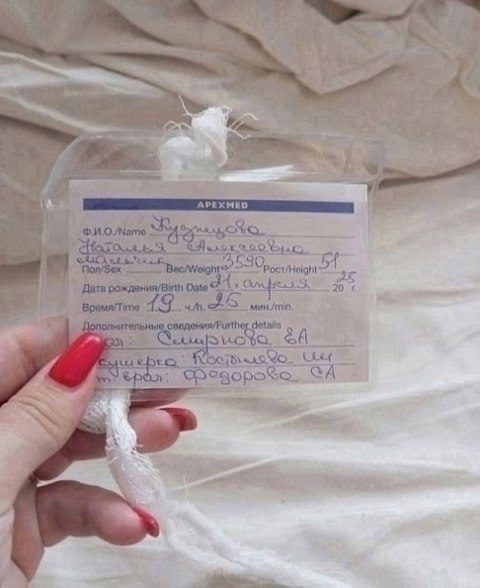 APEXMED
Ф.И.О./Name Кузнецова
Наталья Алексеевна
мальчик
Пол/Sex Вес/Weight 3590 Рост/Height 51
Дата рождения/Birth Date 21. апреля 2025 г.
Время/Time 19 ч./h. 25 мин./min.
Дополнительные сведения/Further details
Смирнова ЕА
кушерка: Костылева ИИ
врач: Федорова СА